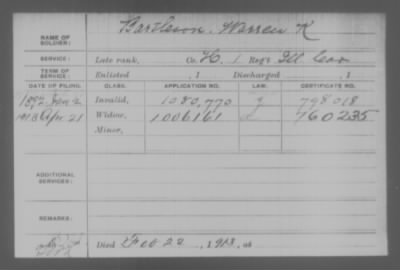 NAME OF SOLDIER: Bartleson, Warren K
SERVICE: Late rank, Co. H. 1 Reg't Ill Cav
TERM OF SERVICE: Enlisted , 1 Discharged , 1
DATE OF FILING. CLASS. APPLICATION NO. LAW. CERTIFICATE NO.
1892 Jan 2 Invalid, 1080,770 798018
1913 Apr 21 Widow, 1006161 760235
Minor,
ADDITIONAL SERVICES:
REMARKS:
Died Feb 22, 1913, at